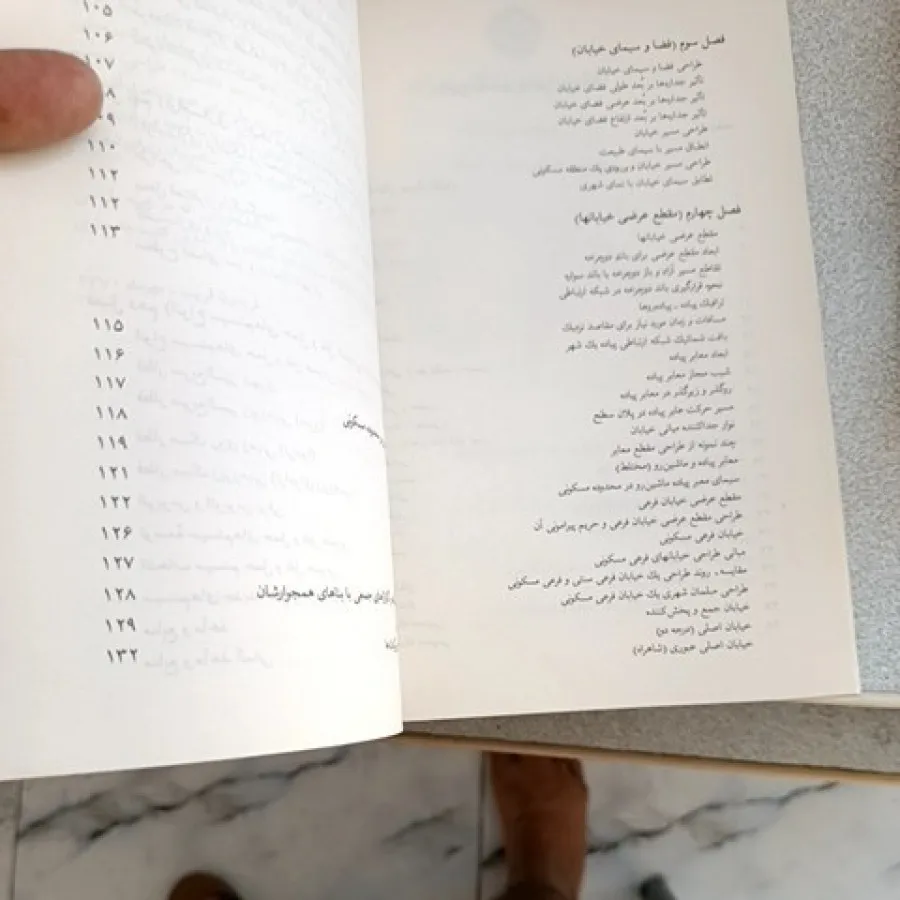 فصل سوم (فضا و سیمای خیابان)
طراحی فضا و سیمای خیابان
تأثیر جدارهها بر بُعد طولی فضای خیابان
تأثیر جدارهها بر بُعد عرضی فضای خیابان
تأثیر جدارهها بر بُعد ارتفاع فضای خیابان
طراحی مسیر خیابان
انطباق مسیر با سیمای طبیعت
طراحی مسیر خیابان و ورودی یك منطقه مسكونی
تطابق سیمای خیابان با نمای شهری
فصل چهارم (مقطع عرضی خیابانها)
مقطع عرضی خیابانها
ابعاد مقطع عرضی برای باند دوچرخه
تقاطع مسیر آزاد و باز دوچرخه با باند سواره
نحوه قرارگیری باند دوچرخه در شبكه ارتباطی
ترافیك پیاده ـ پیادهروها
مسافات و زمان مورد نیاز برای مقاصد نزدیك
بافت شماتیك شبكه ارتباطی پیاده یك شهر
ابعاد معابر پیاده
شیب مجاز معابر پیاده
روگذر و زیرگذر در معابر پیاده
مسیر حركت عابر پیاده در پلان سطح
نوار جداكننده میانی خیابان
چند نمونه از طراحی مقطع معابر
معابر پیاده و ماشین‌رو (مختلط)
سیمای معبر پیاده ماشین‌رو در محدوده مسكونی
مقطع عرضی خیابان فرعی
طراحی مقطع عرضی خیابان فرعی و حریم پیرامونی آن
خیابان فرعی مسكونی
مبانی طراحی خیابانهای فرعی مسكونی
مقایسه ـ روند طراحی یك خیابان فرعی سنتی و فرعی مسكونی
طراحی مبلمان شهری یك خیابان فرعی مسكونی
خیابان جمع و پخش‌كننده
خیابان اصلی (درجه دو)
خیابان اصلی عبوری (شاهراه)
۱۰۵
۱۰۶
۱۰۷
۱۱۰
۱۱۲
۱۱۲
۱۱۳
۱۱۵
۱۱۶
۱۱۷
محدوده مسكونی ۱۱۸
۱۱۹
۱۲۱
۱۲۲
۱۲۶
۱۲۷
با بناهای همجوارشان ۱۲۸
۱۲۹
۱۳۲